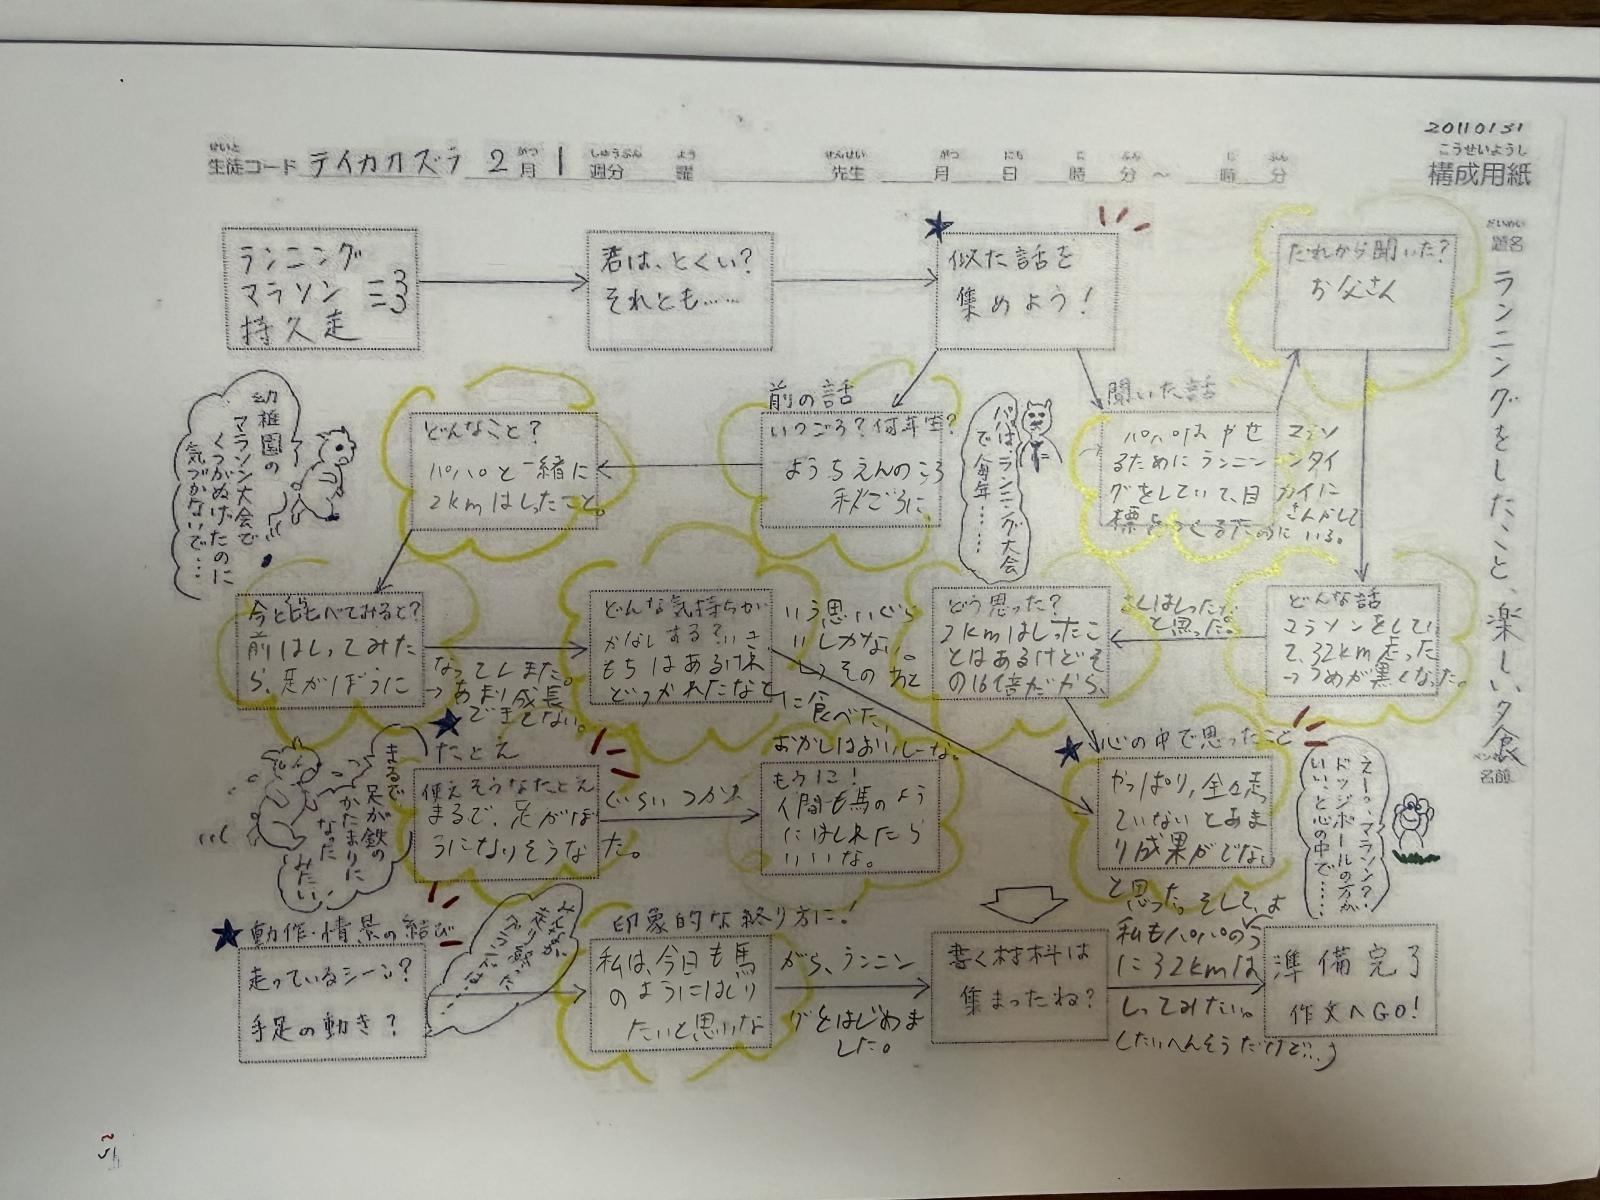 20110131
こうせいようし
構成用紙
せいと
生徒コード テイカカズラ 2月 1週分 曜 先生 月 日 時 分 ~ 時 分
がつ しゅうぶん よう せんせい がつ にち じ ふん じ ふん
だいめい
題名
ランニングをしたこと、楽しい夕食
名前
ランニング
マラソン
持久走
君は、とくい?
それとも……
★
似た話を
集めよう!
だれから聞いた?
お父さん
幼稚園の
マラソン大会で
くつがぬげたのに
気づかないで…
どんなこと?
パパと一緒に
2kmはしったこと。
前の話
いつごろ?何年生?
ようちえんのころ
秋ごろに
パパは、ランニング大会
で毎年……
聞いた話
パパはやせ
るためにランニン
グをしていて、目
標をつくるために
マラソ
ンタイ
カイに
さんかして
いる。
今とくらべてみると?
前はしってみた
ら、足がぼうに
なってしまた。
→あまり成長
できてない。
どんな気持ちが
する?
もちはあるけ
どつかれたなと
いう思いぐら
いしかない。
そのあと
に食べた
おかしはおいしーな。
どう思った?
2kmはしったこ
とはあるけどそ
の16倍だから、
と思った。
どんな話
マラソンをしてい
て、32km走った
→つめが黒くなった。
まるで
足が鉄の
かたまりに
なった
みたい
★
たとえ
使えそうなたとえ
まるで、足がぼ
うになりそうな
ぐらいつかれ
た。
もうに!
人間も馬のよう
にはしれたら
いいな。
★
心の中で思ったこと
やっぱり、全々走
ていないとあま
り成果がでない
と思った。そして、
私もパパのよう
に32kmは
しってみたい。
(たいへんそうだけど…)
えーっ、マラソン?
ドッジボールの方が
いい、と心の中で……
★動作・情景の結び
走っているシーン?
手足の動き?
印象的な終り方に!
私は、今日も馬
のようにはしり
たいと思いな
がら、ランニン
グをはじめま
した。
書く材料は
集まったね?
準備完了
作文へGO!